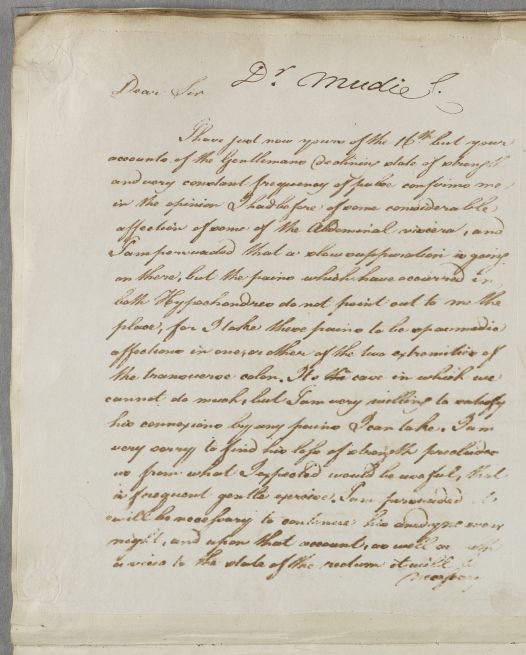 Dr. Mudie S.
Dear Sir
I have just now yours of the 16th but your
accounts of the Gentlemans declining state of strength
and very constant frequency of pulse confirms me
in the opinion I had before of some considerable
affection of some of the Abdominal viscera, and
I am perswaded that a slow suppuration is going
on there, but the pains which have occurred in
both Hypochondres do not point out to me the
place, for I take these pains to be spasmodic
affections in one or other of the two extremities of
the transverse colon. It is the case in which we
cannot do much, but I am very willing to satisfy
his connexions by any pains I can take. I am
very sorry to find his loss of strength precludes
us from what I expected would be useful, that
is frequent gentle exercise. I am perswaded it
will be necessary to continue his anodyne every
night, and upon that account, as well as with
a view to the state of the rectum it will be
necessary